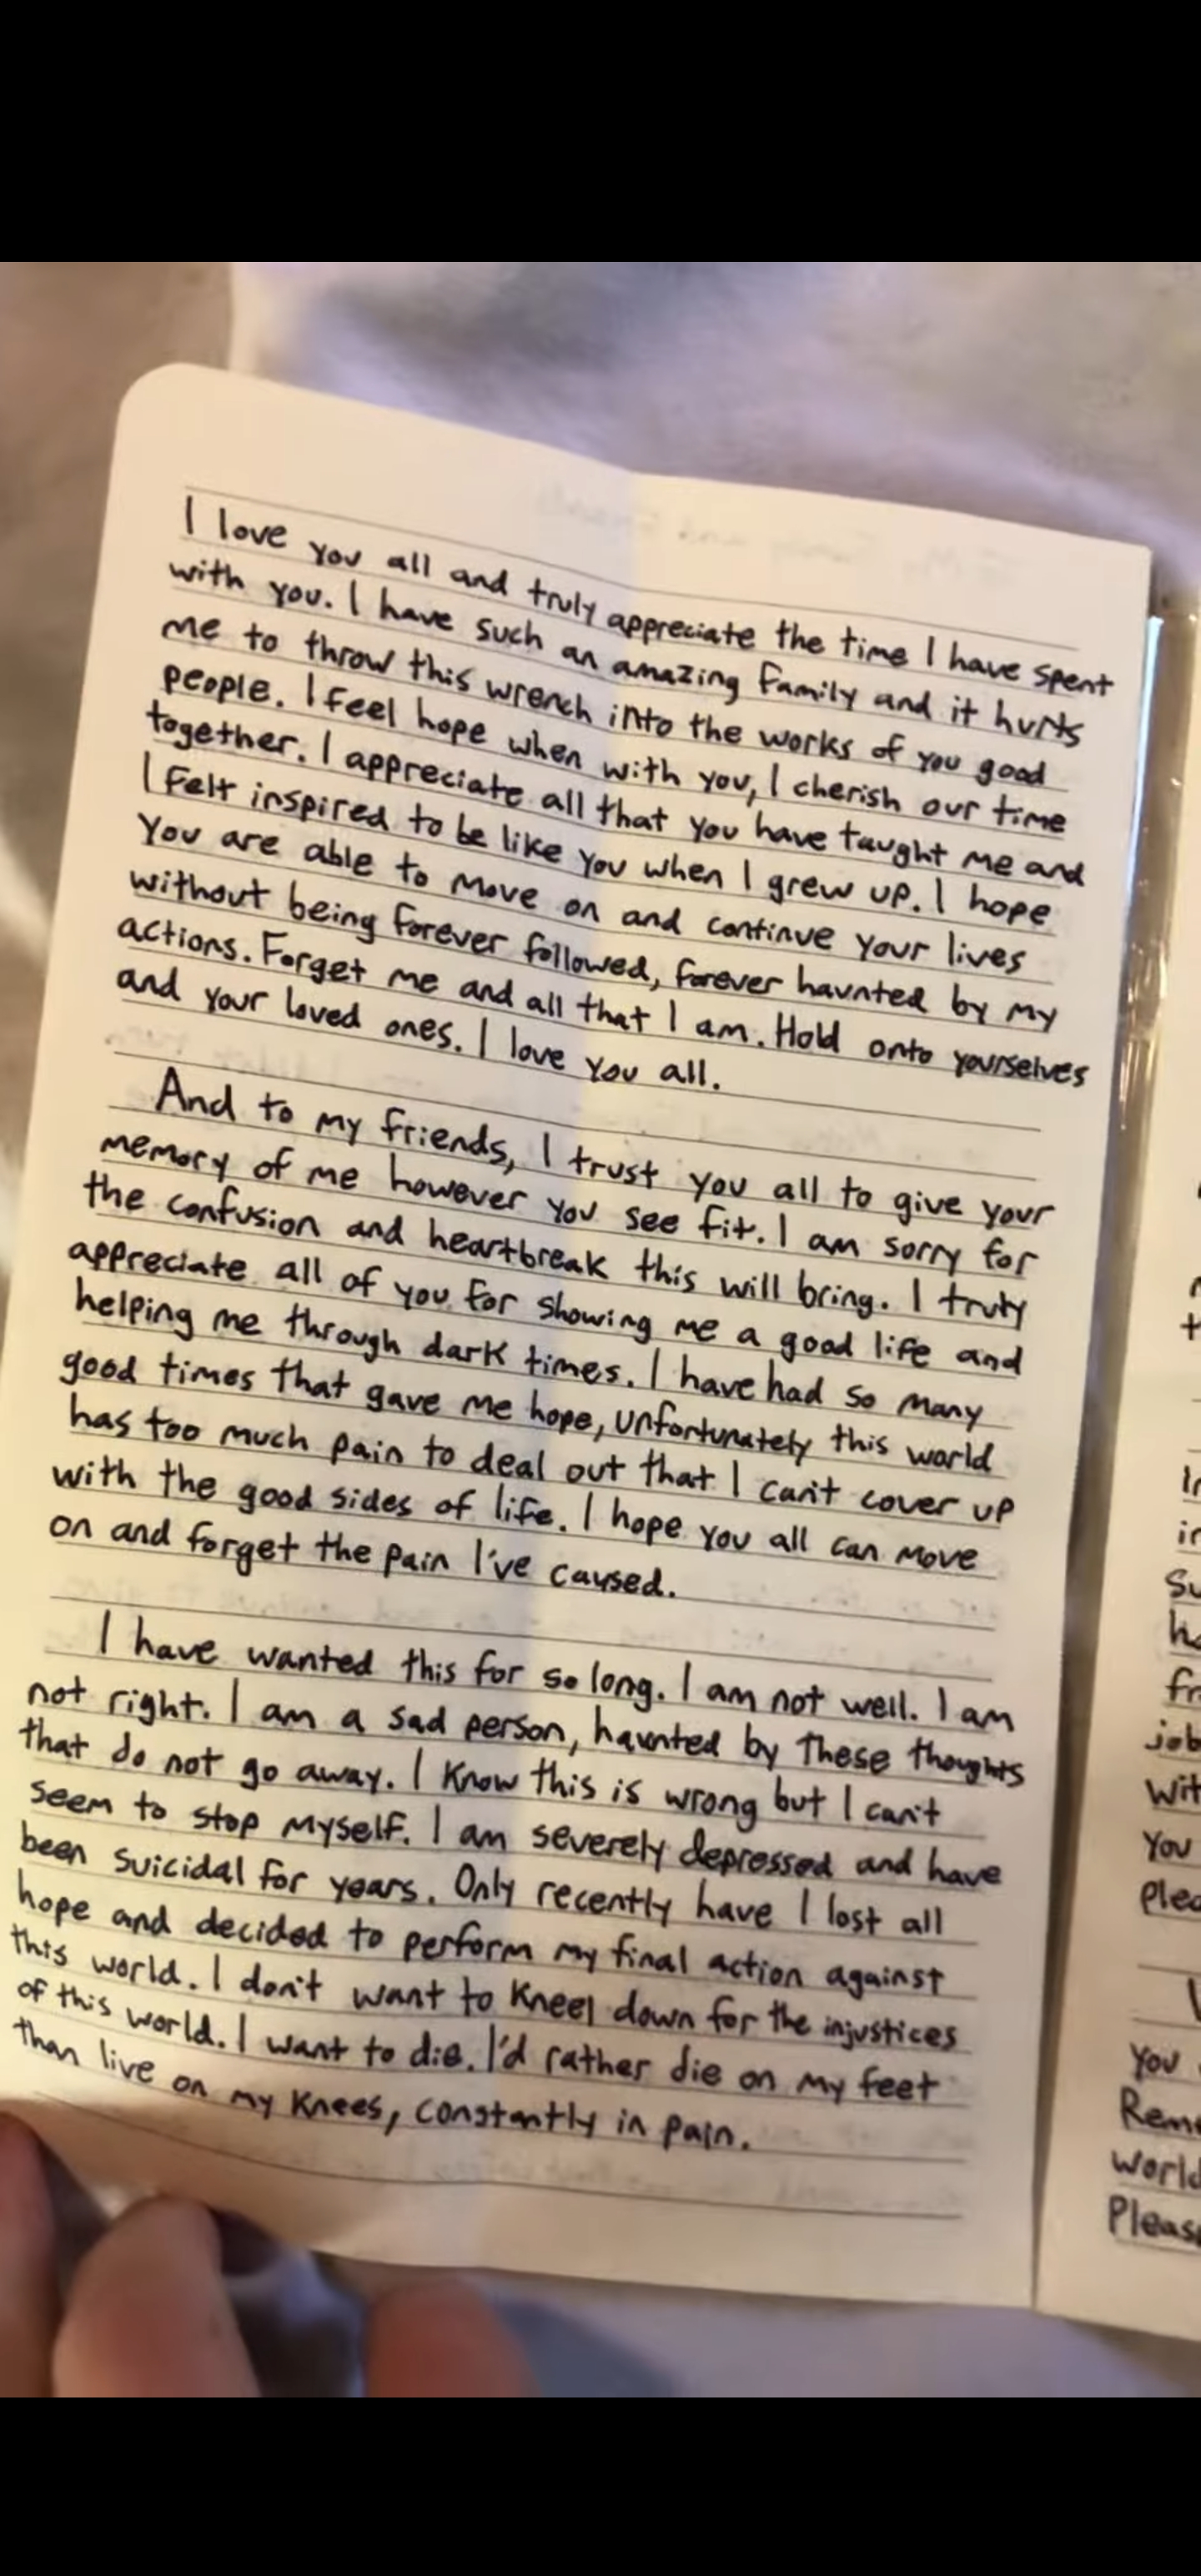 I love you all and truly appreciate the time I have spent
with you. I have such an amazing family and it hurts
me to throw this wrench into the works of you good
people. I feel hope when with you, I cherish our time
together. I appreciate all that you have taught me and
I felt inspired to be like you when I grew up. I hope
You are able to move on and continue your lives
without being forever followed, forever haunted by my
actions. Forget me and all that I am. Hold onto yourselves
and your loved ones. I love you all.
And to my friends, I trust you all to give your
memory of me however you see fit. I am sorry for
the confusion and heartbreak this will bring. I truly
appreciate all of you for showing me a good life and
helping me through dark times. I have had so many
good times that gave me hope, unfortunately this world
has too much pain to deal out that I can't cover up
with the good sides of life. I hope you all can move
on and forget the pain I've caused.
I have wanted this for so long. I am not well. I am
not right. I am a sad person, haunted by these thoughts
that do not go away. I know this is wrong but I can't
seem to stop myself. I am severely depressed and have
been suicidal for years. Only recently have I lost all
hope and decided to perform my final action against
this world. I don't want to kneel down for the injustices
of this world. I want to die. I'd rather die on my feet
than live on my knees, constantly in pain.
You
You